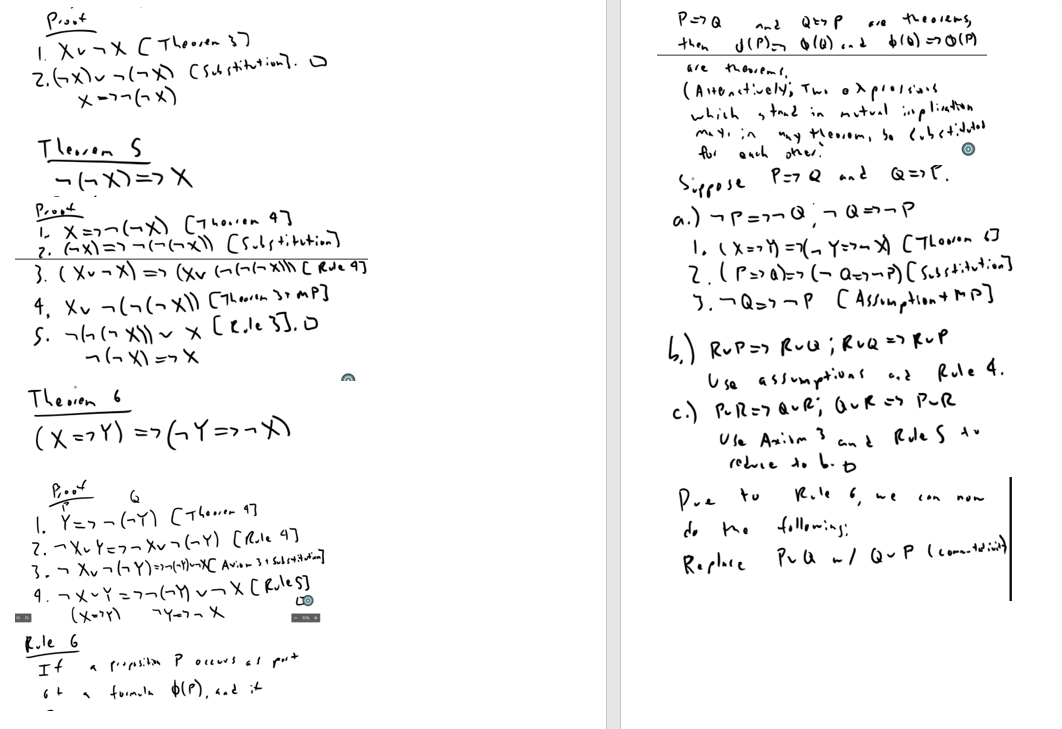 Proof
1. X∨¬X [Theorem 3]
2. (¬X)∨¬(¬X) [Substitution]. □
X=>¬(¬X)
Theorem 5
¬(¬X)=>X
Proof
1. X=>¬(¬X) [Theorem 4]
2. (¬X)=>¬(¬(¬X)) [Substitution]
3. (X∨¬X)=>(X∨(¬(¬(¬X))) [Rule 4]
4. X∨¬(¬(¬X)) [Theorem 3+MP]
5. ¬(¬(¬X))∨X [Rule 3]. □
¬(¬X)=>X
Theorem 6
(X=>Y)=>(¬Y=>¬X)
Proof
P Q
1. Y=>¬(¬Y) [Theorem 4]
2. ¬X∨Y=>¬X∨¬(¬Y) [Rule 4]
3. ¬X∨¬(¬Y)=>¬(¬Y)∨¬X [Axiom 3+Substitution]
4. ¬X∨Y=>¬(¬Y)∨¬X [Rule 5]
(X=>Y) ¬Y=>¬X □
Rule 6
If a proposition P occurs as part
of a formula ϕ(P), and if
P=>Q and Q=>P are theorems,
then ϕ(P)=>ϕ(Q) and ϕ(Q)=>ϕ(P)
are theorems.
(Alternatively; Two expressions
which stand in mutual implication
may, in any theorem, be substituted
for each other.
Suppose P=>Q and Q=>P.
a.) ¬P=>¬Q; ¬Q=>¬P
1. (X=>Y)=>(¬Y=>¬X) [Theorem 6]
2. (P=>Q)=>(¬Q=>¬P) [Substitution]
3. ¬Q=>¬P [Assumption+MP]
b.) R∨P=>R∨Q; R∨Q=>R∨P
Use assumptions and Rule 4.
c.) P∨R=>Q∨R; Q∨R=>P∨R
Use Axiom 3 and Rule 5 to
reduce to b. □
Due to Rule 6, we can now
do the following:
Replace P∨Q w/ Q∨P (commutativity)